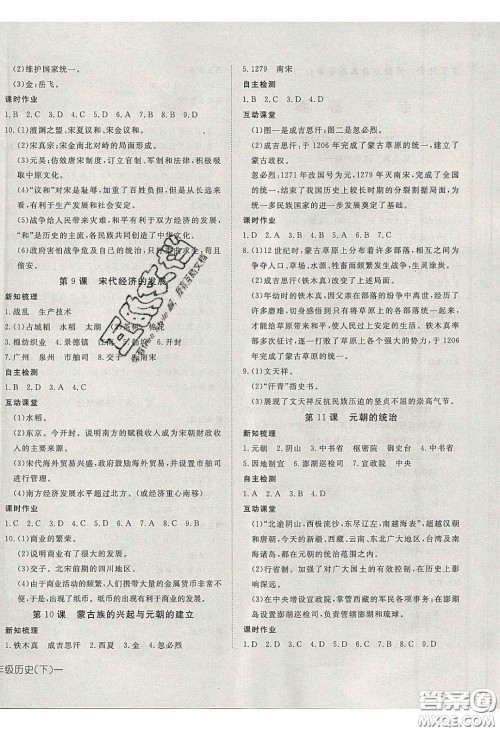 (2)维护国家统一。
(3)金;岳飞。
课时作业
1.B 2.C 3.D 4.C 5.D 6.A 7.A 8.B 9.D
10.(1)澶渊之盟、宋夏议和、宋金议和。
(2)宋真宗:宋朝北方对峙的局面形成。
(3)元昊:仿效唐宋制度,订立官制、军制和法律,吸取中原文化。
(4)“议和”对宋是耻辱,加重了百姓负担,但是减少了损失,维护了和平,有利于双方经济的发展。
(5)战争给人民带来灾难,和平有利于经济的发展;“和”是历史的主流,各民族共同创造了中华文化。
(6)政府害怕战争危及自己的统治,所以希望用金钱买平安。
第9课 宋代经济的发展
新知梳理
1.战乱 生产技术
2.(1)占城稻 水稻
3.棉纺织业 4.景德镇
7.广州 泉州 市舶司
自主检测
1.B 2.D 3.A 4.D
互动课堂
(1)水稻。
(2)东京。今开封。说明南方的赋税收入成为宋王朝财政收入的主要来源。
(3)宋代海外贸易兴盛,政府鼓励海外贸易,并设置市舶司进行管理。
(4)南方经济发展水平超过北方。
课时作业
1.C 2.C 3.D 4.D 5.D 6.D 7.B 8.C 9.D
10.(1)商业的繁荣。
(2)说明商业有了很大的发展。
(3)交子。北宋前期的四川地区。
(4)由于商业的发展,体积大分量重的金属货币非常不便。
第10课 蒙古族的兴起与元朝的建立
新知梳理
1.铁木真 成吉思汗 2.西夏 金 3.元 4.忽必烈
年级历史(下)一
5.1279 南宋
自主检测
1.B 2.C 3.D 4.D
互动课堂
(1)图一是成吉思汗;图二是忽必烈。
(2)成吉思汗:于1206年完成了蒙古草原的统一,建立了蒙古政权。
忽必烈:1271年改国号为元,1279年灭亡南宋,完成了全国的统一,结束了我国历史上较长时期的分裂割据局面,为统一多民族国家的进一步发展奠定了基础。
课时作业
1.B 2.C 3.D 4.A 5.D 6.B 7.D
8.(1)12世纪时,受蒙古草原上分布着许多部落,他们之间为争夺人口、草场、牲畜,不断发生战争,生灵涂炭。
(2)改变了草原的混战局面,实现草原的统一。
(3)年幼时的铁木真,因父亲在部落的纷争中被毒害,经历了常人难以忍受的苦难,在苦难中成长。铁木真先后打败草原上各个部落,成长为一个强大的势力,于1206年完成了蒙古草原的统一。
9.(1)文天祥。
(2)“汗青”指史书。
(3)展现了文天祥反抗民族压迫的坚贞不屈的崇高气节。
第11课 元朝的统治
新知梳理
1.大都 2.文天祥 3.元 4.中书省 枢密院 御史台 行中书省
5.因地制宜 6.澎湖巡检司 7.宣政院 中央
自主检测
1.D 2.A 3.A 4.B
互动课堂
(1)“北逾阴山,西极流沙,东尽辽左,南越海表”;超越汉朝和唐朝;今天的新疆、西藏、云南、东北广大地区、台湾及南海诸岛,都在元朝的统治范围内。
(2)行省制度。加强了对广大国土的统治,对全国实行了有效的控制。
(3)在中央设置宣政院,掌管西藏的军民各项事务;设置澎湖巡检司,管辖澎湖和琉球。
课时作业
1.D 2.D 3.C 4.B 5.D 6.A 7.A 8.B 9.A